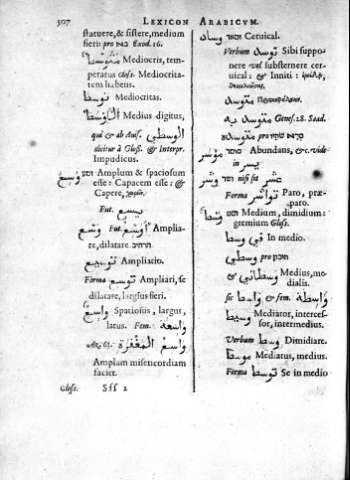 507 LEXICON ARABICVM.
statuere, & sistere, medium
fieri: pro Exod. 16.
متوسط Mediocris, tem-
peratus Gloss. Mediocrita-
tem habens.
توسط Mediocritas.
Medius digitus,
qui & ab Auf. الوسطى
dicitur à Gloss. & Interpr.
Impudicus.
وسع Amplum & spaciosum
esse: Capacem esse: &
Capere,
Fut. يسع
وسع Fut. أوسع Amplia-
re, dilatare.
توسيع Ampliatio.
Forma توسع Ampliari, se
dilatare, largius fieri.
واسع Spatiosus, largus,
latus. Fem: واسعة
واسع المغفرة
Amplum misericordiam
faciet.
Gloss. Sss 2
وساد Cervical.
Verbum توسد Sibi suppo-
nere vel substernere cer-
vical: & Inniti:
متوسد
متوسد به Genes. 28. Saad.
موسر Abundans, &c. vide
in يسر
وشر nisi sit عشر
Forma تواشر Paro, præ-
paro.
وسط Medium, dimidium:
gremium Gloss.
في وسط In medio.
& وسطاني Medius, me-
dialis.
sic واسط & fem. واسطة
وسيط Mediator, interces-
sor, intermedius.
Verbum وسط Dimidiare.
موسط Mediatus, medius.
Forma توسط Se in medio